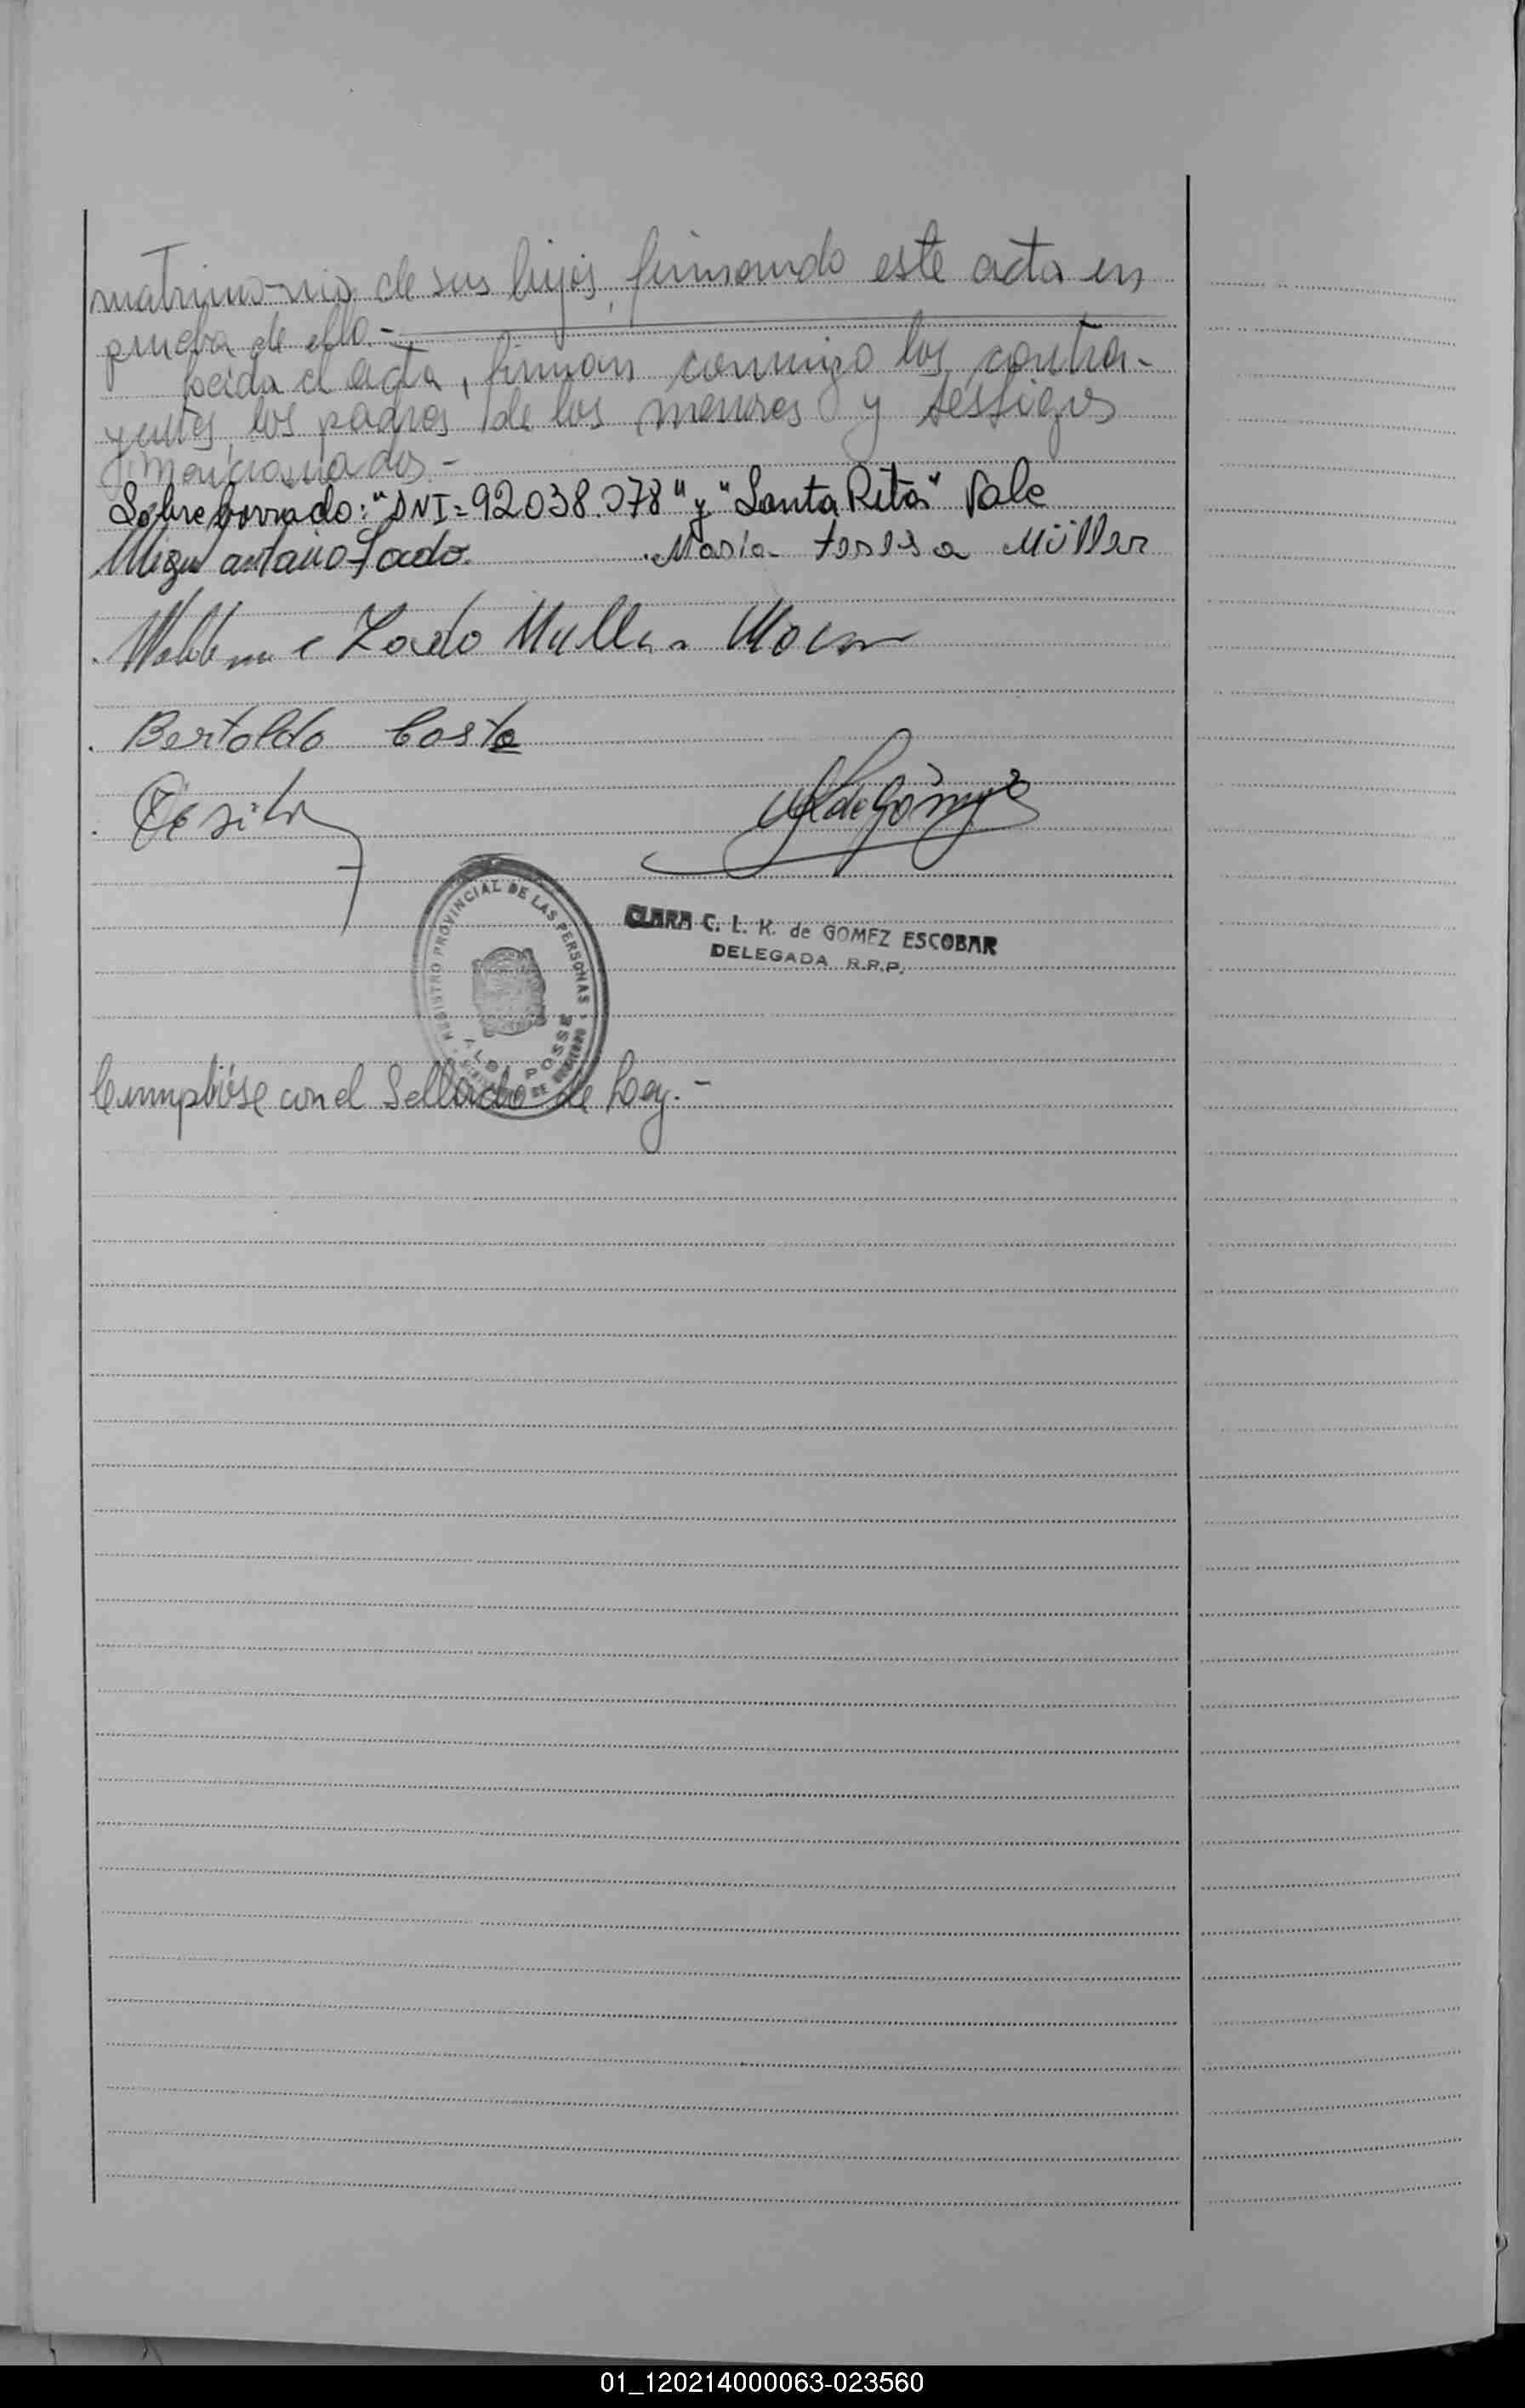 matrimonio de sus hijos, firmando este acta en
prueba de ello.-
Leida el acta, firman conmigo los contra-
yentes, los padres de los menores y testigos
mencionados.-
Sobre borrado: "DNI=92038.078" y "Santa Rita" Vale
Miguel antonio . Maria teresa Müller
Muller
. Bertoldo Costa
de Gómez
REGISTRO PROVINCIAL DE LAS PERSONAS
ALBA POSSE
CLARA C. L. K. de GOMEZ ESCOBAR
DELEGADA R.P.P.
Cumplióse con el Sellado de Ley.-
01_120214000063-023560